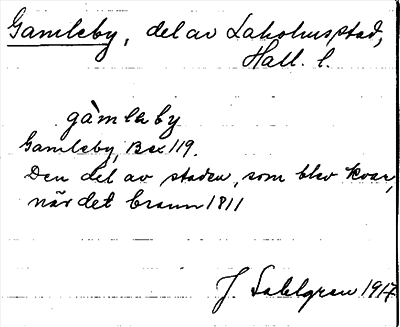 Gamleby, del av Laholms stad,
Hall. l.
gàmlaby
Gamleby, Bex 119.
Den del av staden, som blev kvar,
när det brann 1811
J. Sahlgren 1917